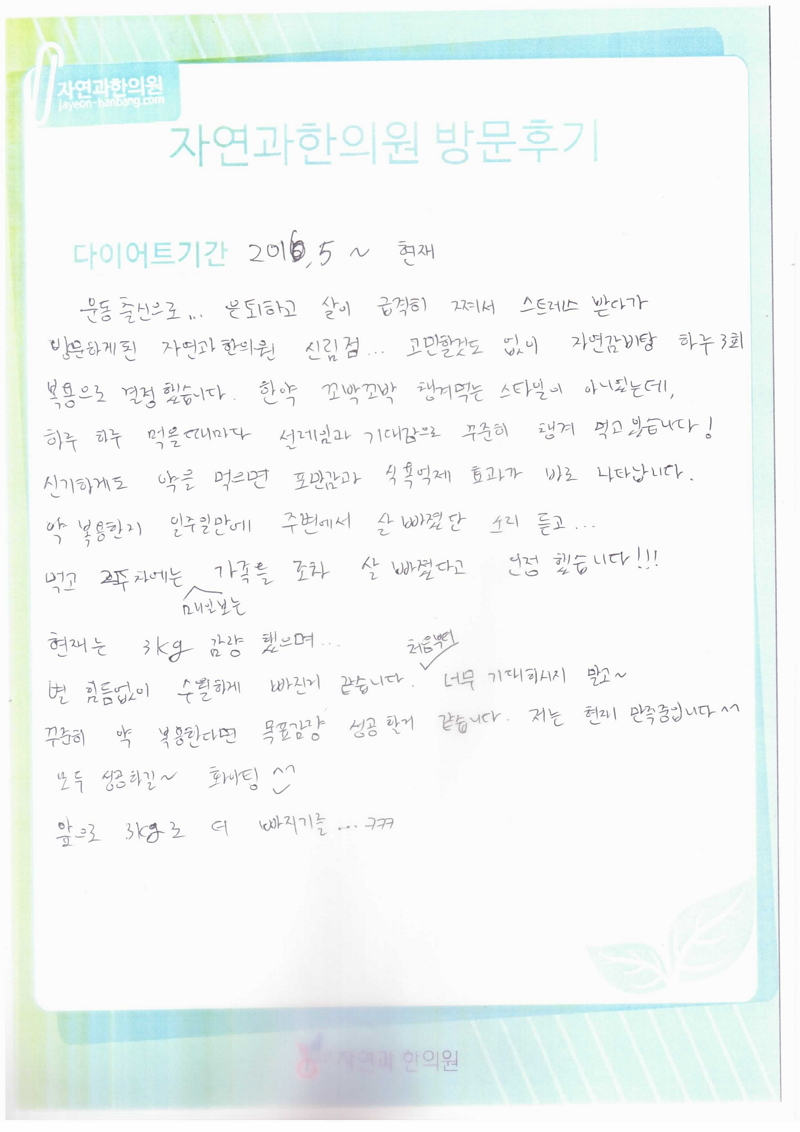 자연과한의원
jayeon-hanbang.com
자연과한의원 방문후기
다이어트기간 2016.5 ~ 현재
운동 출신으로... 은퇴하고 살이 급격히 쪄서 스트레스 받다가
방문하게된 자연과한의원 신림점... 고민할것도 없이 자연감비탕 하루3회
복용으로 결정했습니다. 한약 꼬박꼬박 챙겨먹는 스타일이 아니였는데,
하루 하루 먹을때마다 설레임과 기대감으로 꾸준히 챙겨 먹고있습니다!
신기하게도 약을 먹으면 포만감과 식욕억제 효과가 바로 나타납니다.
약 복용한지 일주일만에 주변에서 살 빠졌단 소리 듣고...
먹고 2주차에는 가족들 조차 살 빠졌다고 인정 했습니다!!!
매일보는
현재는 3kg 감량 했으며...
처음부터
별 힘듬없이 수월하게 빠진거 같습니다. 너무 기대하시지 말고~
꾸준히 약 복용한다면 목표감량 성공할거 같습니다. 저는 현재 만족중입니다^^
모두 성공하길~ 화이팅 ^^
앞으로 3kg로 더 빠지기를...ㅋㅋㅋ
자연과 한의원